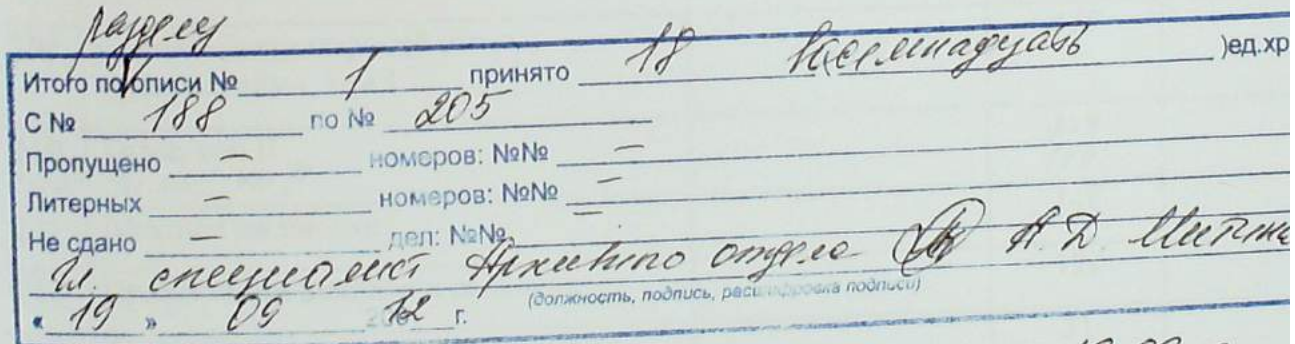 разделу
Итого по описи № 1 принято 18 восемнадцать )ед.хр
С № 188 по № 205
Пропущено — номеров: №№ —
Литерных — номеров: №№ —
Не сдано — дел: №№ —
Гл. специалист Архивного отдела А.Д.
(должность, подпись, расшифровка подписи)
« 19 » 09 2012 г.